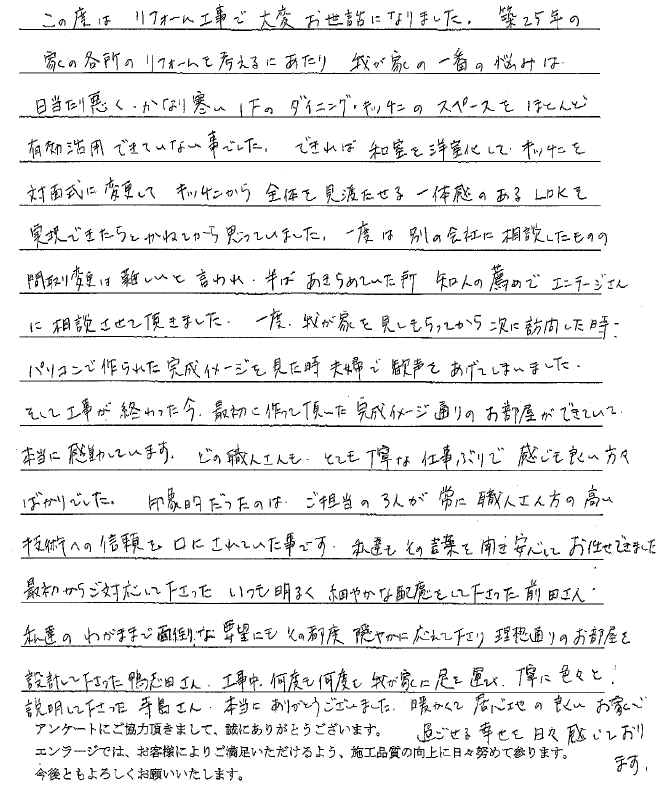 この度は リフォーム工事で 大変 お世話になりました。 築25年の
家の各所の リフォームを考えるにあたり 我が家の一番の悩みは
日当たり悪く、かなり寒い 1Fの ダイニング・キッチンの スペースを ほとんど
有効活用 できていない事でした。 できれば 和室を洋室化して、キッチンを
対面式に変更して キッチンから 全体を見渡たせる 一体感のある LDKを
実現できたらと かねてから 思っていました。 一度は 別の会社に 相談したものの
間取り変更は難しいと 言われ、半ば あきらめていた所 知人の薦めで エンラージさん
に 相談させて頂きました。 一度、我が家を 見てもらってから 次に訪問した時、
パソコンで作られた完成イメージを見た時 夫婦で 歓声を あげてしまいました。
そして工事が 終わった今、最初に作って頂いた 完成イメージ通りの お部屋ができていて、
本当に 感動しています。 どの職人さんも、とても 丁寧な 仕事ぶりで 感じも良い方々
ばかりでした。 印象的だったのは、ご担当の 3人が 常に 職人さん方の高い
技術への信頼を 口にされていた事です。 私達も その言葉を聞き安心して お任せできました
最初からご対応して下さった いつも明るく 細やかな配慮をして下さった 前田さん、
私達の わがままで面倒な 要望にも その都度 穏やかに応えて下さり 理想通りのお部屋を
設計して下さった 鴨志田さん、工事中、何度も何度も 我が家に足を運び、丁寧に色々と
説明して下さった 寺島さん、本当に ありがとうございました。 暖かくて 居心地の良い お家で
過ごせる幸せを 日々 感じており
ます。
アンケートにご協力頂きまして、誠にありがとうございます。
エンラージでは、お客様によりご満足いただけるよう、施工品質の向上に日々努めて参ります。
今後ともよろしくお願いいたします。